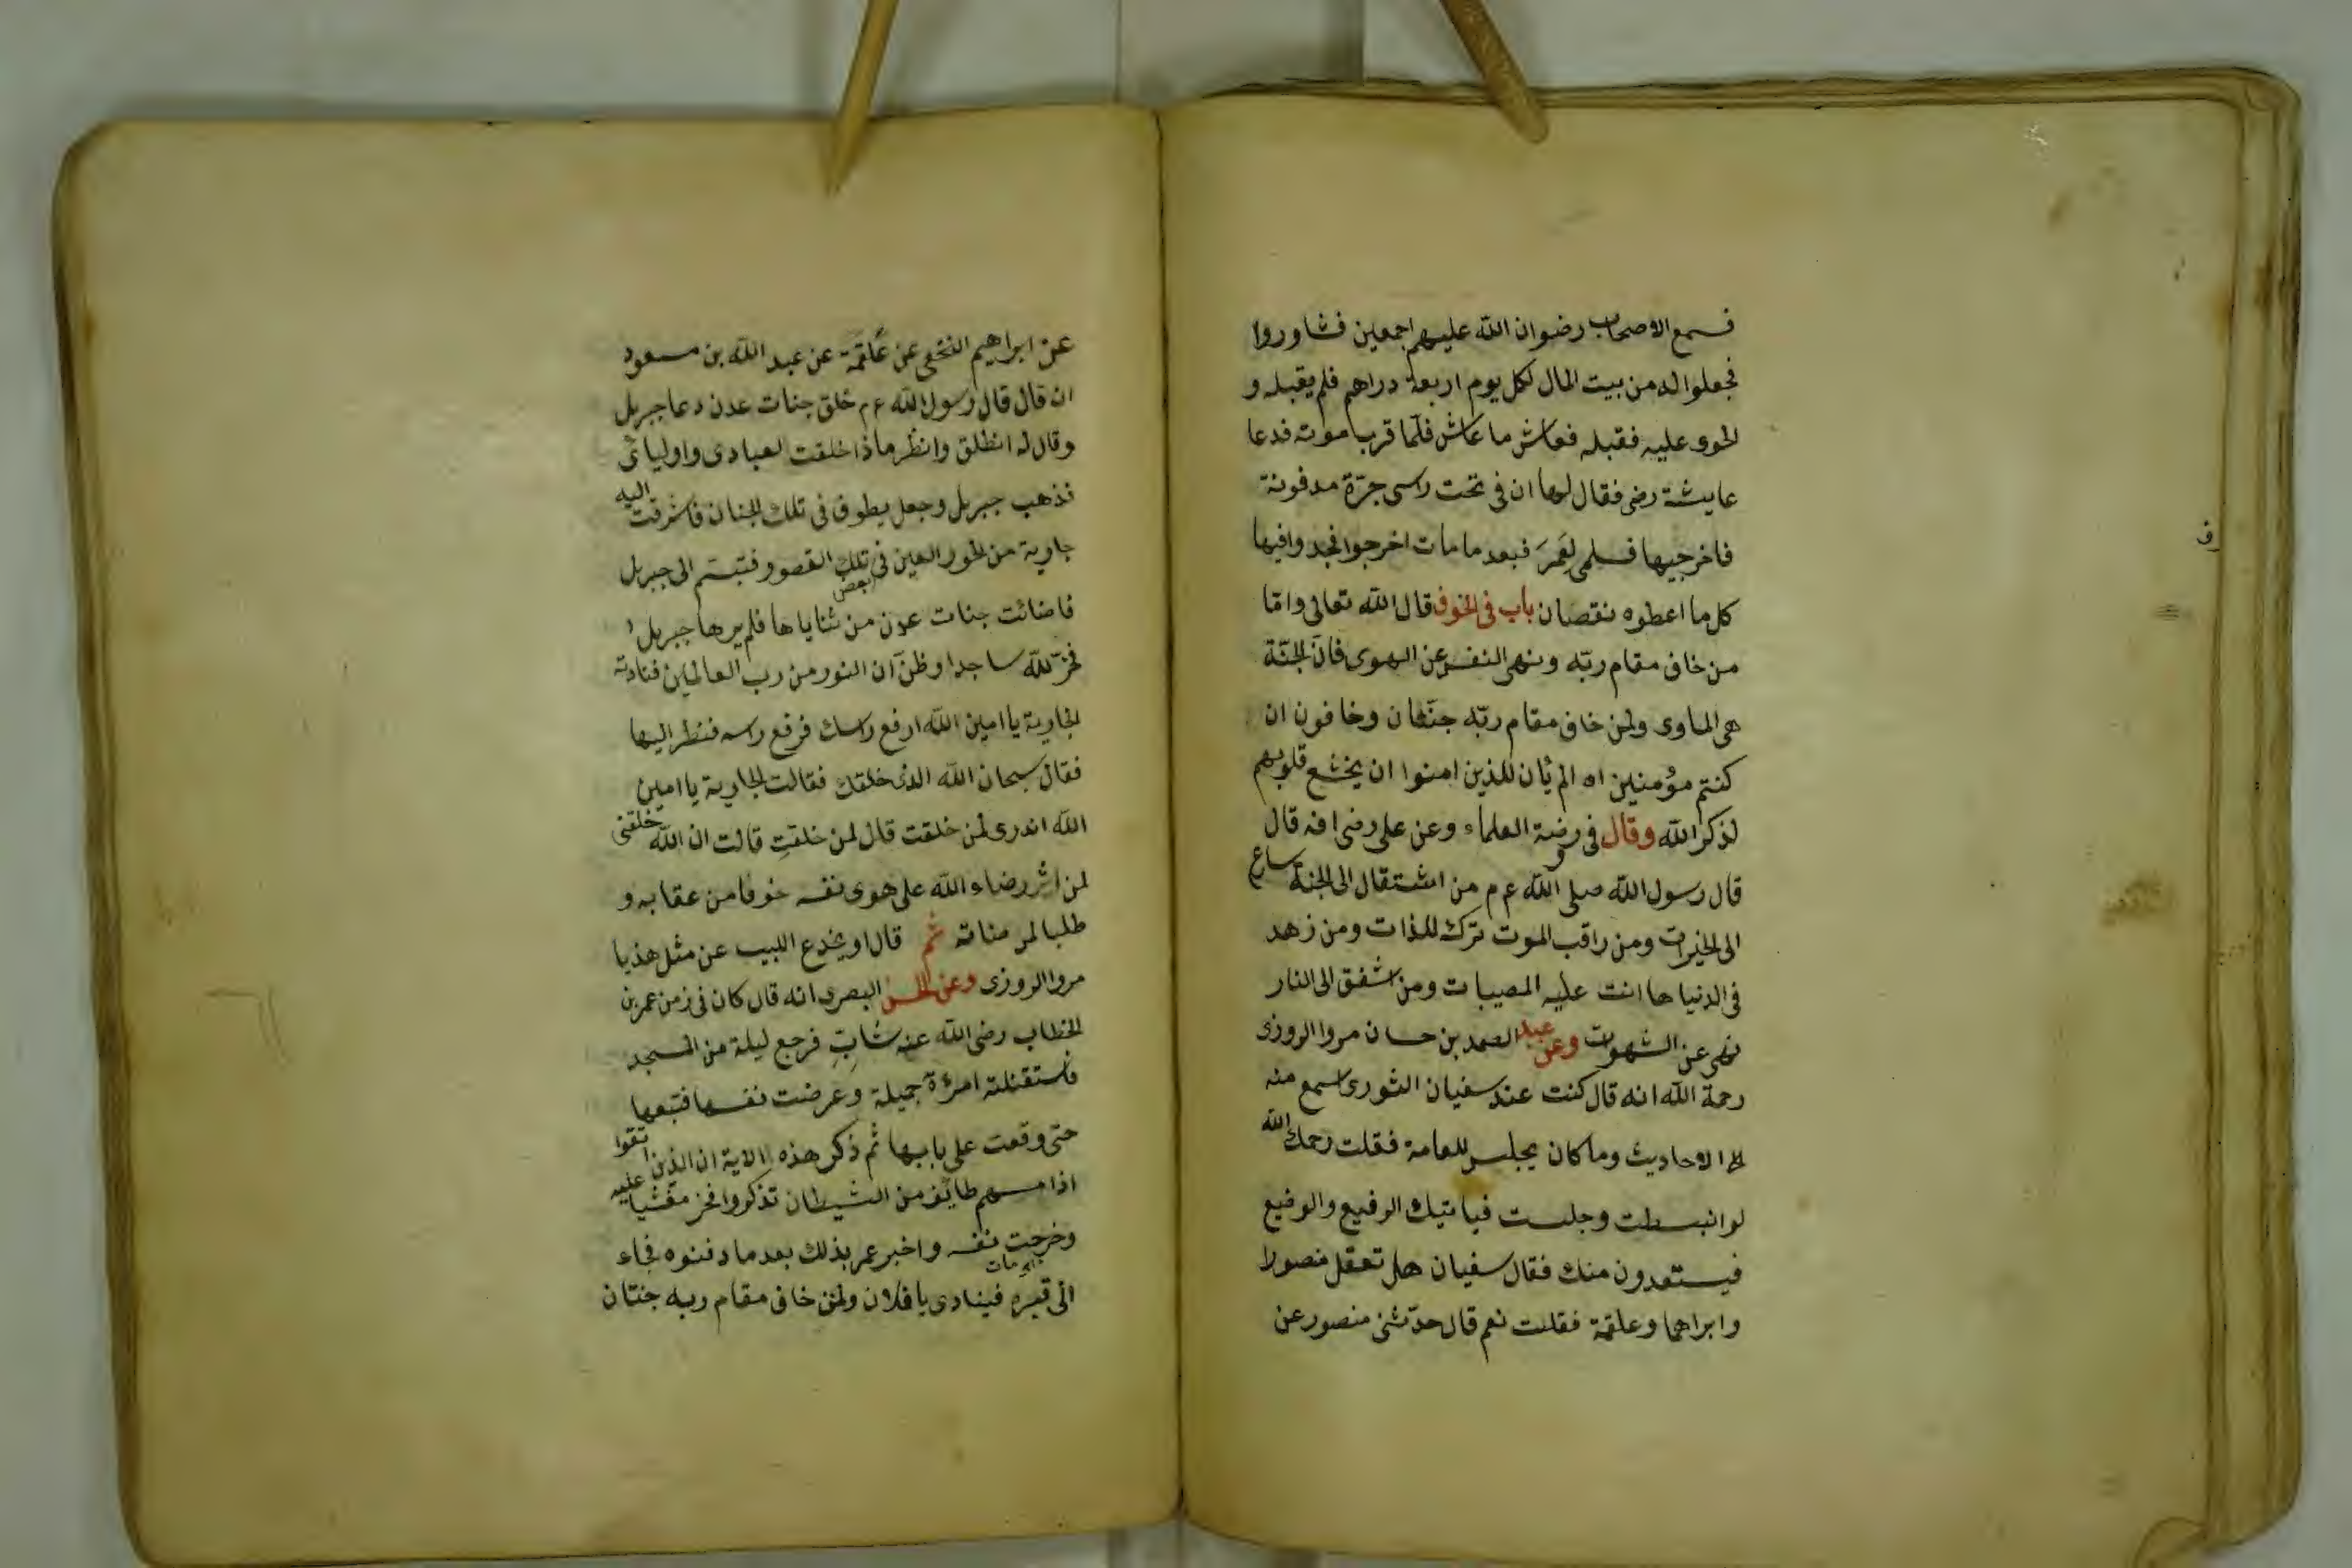 فسمع الاصحاب رضوان الله عليهم اجمعين فشاوروا
فجعلوا له من بيت المال لكل يوم اربعة دراهم فلم يقبله و
لحوى عليه فقبله فعاش ما عاش فلما قرب موته فدعا
عايشة رضى فقال لها ان فى تحت راسى جرّة مدفونة
فاخرجيها فسلمى لِعُمَرَ فبعد ما مات اخرجوا فجدوا فيها
كل ما اعطوه نقصان باب فى الخوف قال الله تعالى واما
من خاف مقام ربّه ونهى النفس عن الهوى فانّ الجنّة
هى الماوى ولمن خاف مقام ربّه جنّتان وخافون ان
كنتم مؤمنين اه الم يأن للذين امنوا ان يخشع قلوبهم
لذكر الله وقال فى روضة العلماء وعن على رضى انه قال
قال رسول الله صلى الله ع م من اشتقال الى الجنة سارع
الى الخيرات ومن راقب الموت ترك اللذات ومن زهد
فى الدنيا هانت عليه المصيبات ومن شفق الى النار
نهى عن الشهوات وعن عبد الصمد بن حسان مروا الروزى
رحمة الله انه قال كنت عند سفيان الثورى اسمع منه
الاحاديث وما كان يجلس للعامة فقلت رحمك الله
لو انبسطت وجلست فياتيك الرفيع والوضيع
فيستعدون منك فقال سفيان هل تعقل منصورا
وابراهما وعلقمة فقلت نعم قال حدّثنى منصور عن
عن ابراهيم النخعى عن علقمة عن عبد الله بن مسعود
ان قال قال رسول الله ع م خلق جنات عدن دعا جبريل
وقال له انطلق وانظر ماذا خلقت لعبادى واوليائى
فذهب جبريل وجعل يطوف فى تلك الجنان فاشرفت اليه
جارية من الحور العين فى بعض تلك القصور فتبسّم الى جبريل
فاضائت جنات عدن من ثناياها فلم يرها جبريل
فخرّ لله ساجدا وظنّ ان النور من رب العالمين فنادته
الجارية يا امين الله ارفع راسك فرفع راسه فنظر اليها
فقال سبحان الله الذى خلقك فقالت الجارية يا امين
الله اتدرى لمن خلقت قال لمن خلقتِ قالت ان الله خلقنى
لمن اثر رضاء الله على هوى نفسه خوفا من عقابه و
طلبا لمرضاته ثم قال او يخدع اللبيب عن مثل هذيا
مروا الروزى وعن الحسن البصرى انه قال كان فى زمن عمر بن
الخطاب رضى الله عنه شابّ فرجع ليلة من المسجد
فاستقبلته امرئة جميلة وعرضت نفسها فتبعها
حتى وقعت على بابها ثم ذكر هذه الاية ان الذين اتقوا
اذا مسهم طايف من الشيطان تذكروا فخر مغشيا عليه
وخرجت نفسه واخبر عمر بذلك بعد ما دفنوه فجاء
الى قبره فينادى يا فلان ولمن خاف مقام ربه جنتان